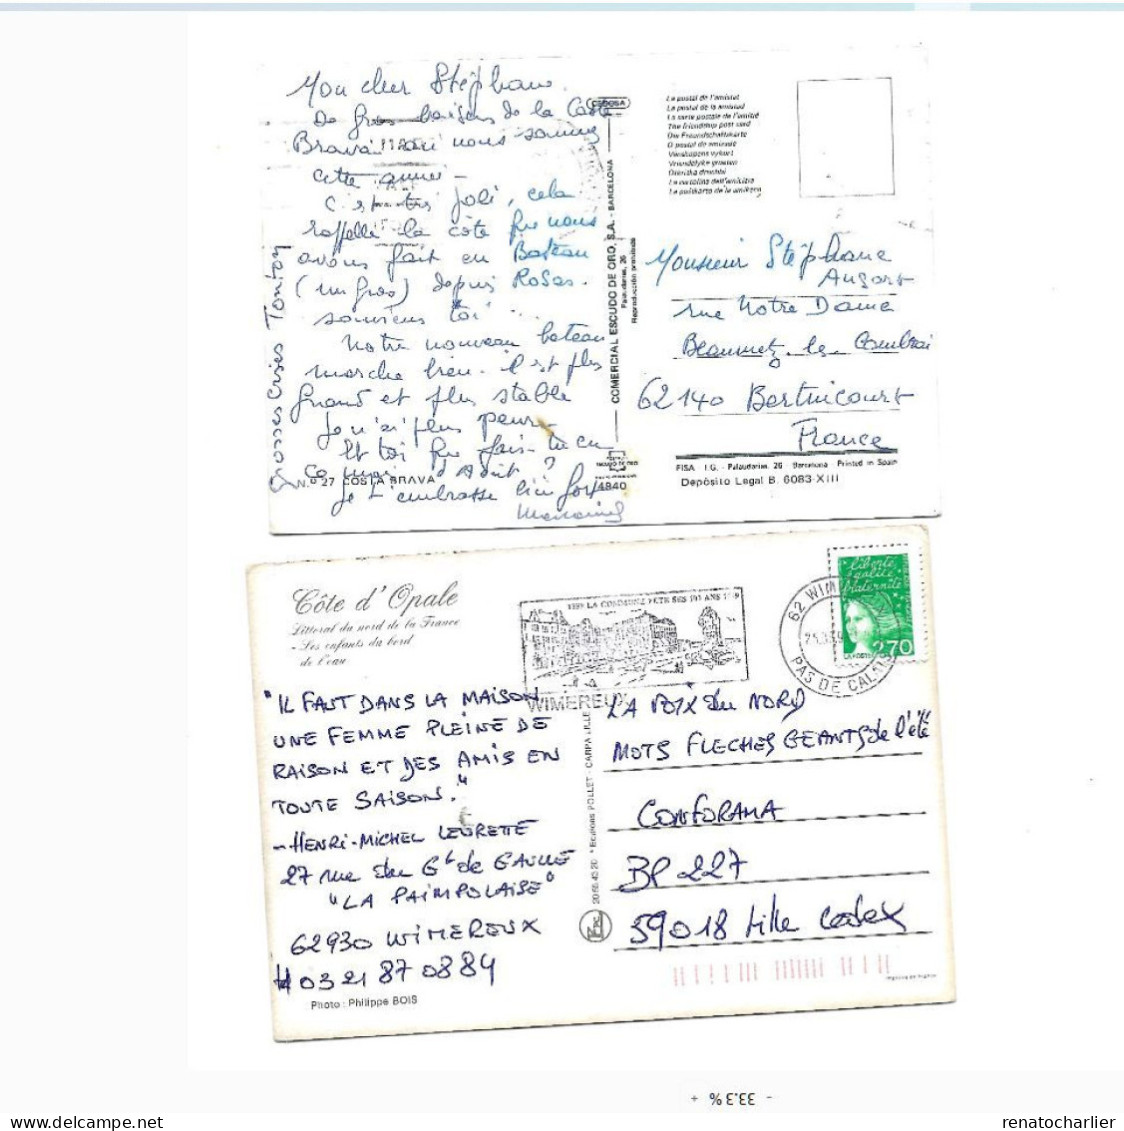 Mon cher Stéphane.
De gros baisers de la Costa
Brava où nous sommes
cette année -
C'est très joli, cela
rappelle la côte que nous
avons fait en Bateau
(un gros) depuis Rosas.
souviens toi ...
Notre nouveau bateau
marche bien. il est plus
grand et plus stable
Je n'ai plus peur.
Et toi que fais-tu en
ce mois d'Août ?
Je t'embrasse bien fort
Grosses Bises Tonton
N.º 27 COSTA BRAVA
CEDOSA
COMERCIAL ESCUDO DE ORO, S.A. - BARCELONA
Palaudarias, 26
Reproducción prohibida
4840
La postal de l'amistat
La postal de la amistad
La carte postale de l'amitié
The friendship post card
Die Freundschaftskarte
O postal da amizade
Vänskapens vykort
Vriendelijke groeten
La cartolina dell'amicizia
Monsieur Stéphane
rue Notre Dame
Beaumetz les Cambrai
62140 Bertincourt
France
FISA I.G. - Palaudarias, 26 Barcelona Printed in Spain
Depósito Legal B. 6083-XIII
Côte d'Opale
Littoral du nord de la France
- Les enfants du bord
de l'eau
"IL FAUT DANS LA MAISON
UNE FEMME PLEINE DE
RAISON ET DES AMIS EN
TOUTE SAISON."
- HENRI-MICHEL LEURETTE
27 rue du Gal de GAULLE
"LA PAIMPOLAISE"
62930 WIMEREUX
03 21 87 0884
Photo : Philippe BOIS
LA COMMUNE FETE SES 100 ANS
WIMEREUX
62 WIM
PAS DE CALAIS
liberté
égalité
fraternité
LA POSTE
2,70
Editions POLLET - CARPA LILLE
LA VOIX du NORD
MOTS FLECHES GEANTS de l'été
CONFORAMA
BP 227
59018 Lille Cedex
- 33.3 % +
renatocharlier